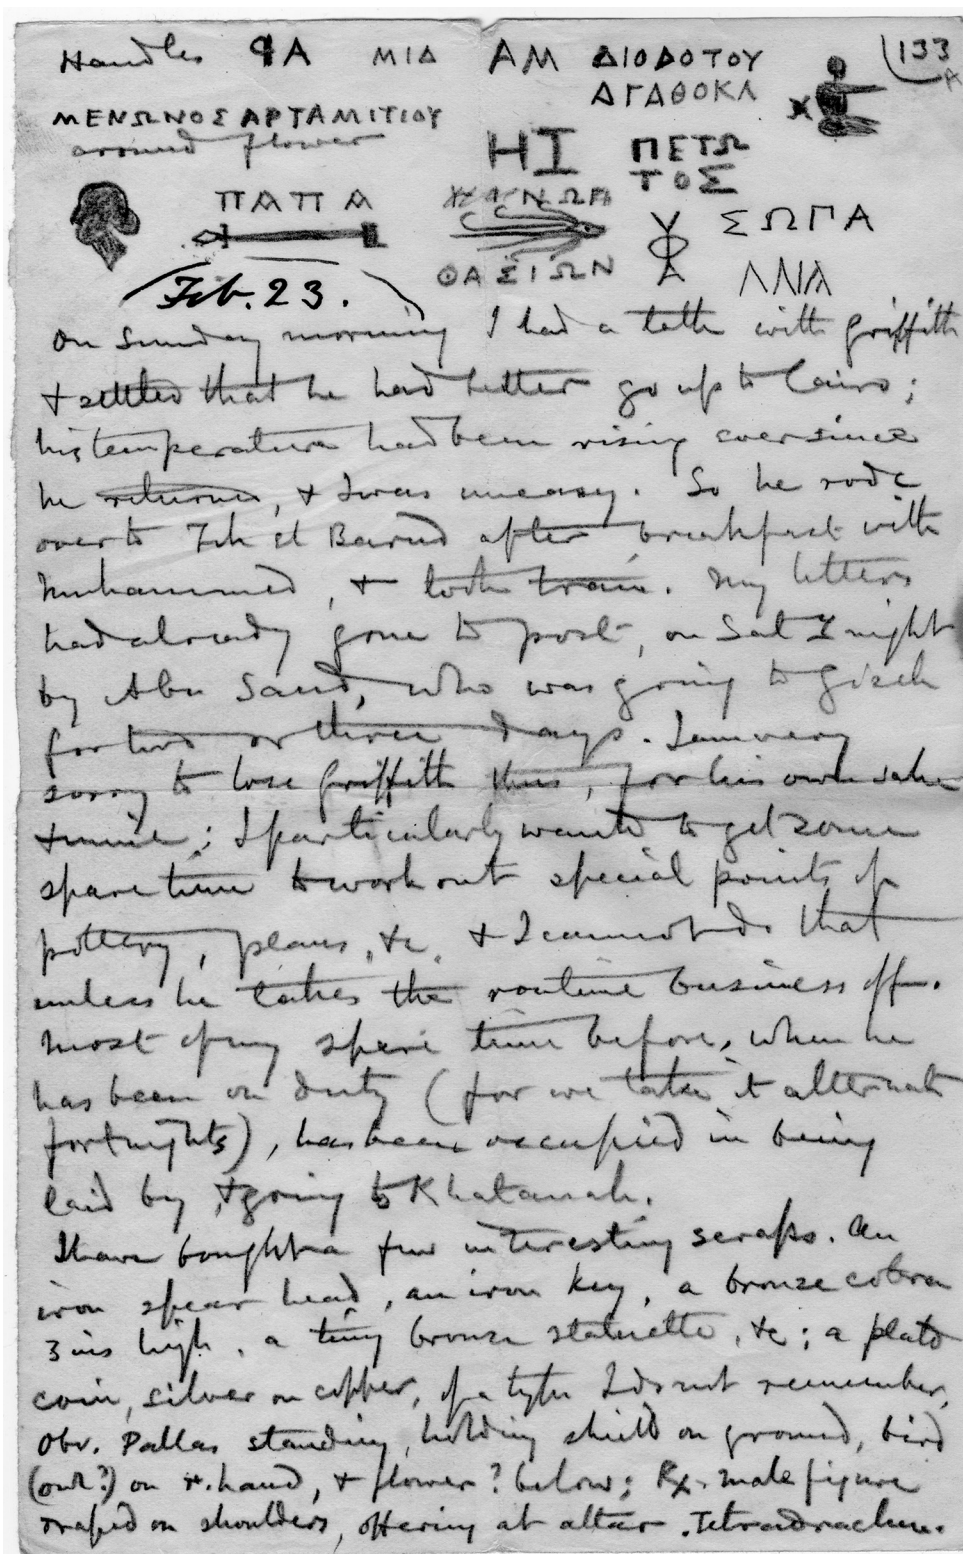 Handles ϘΑ ΜΙΔ ΑΜ ΔΙΟΔΟΤΟΥ 133
ΑΓΑΘΟΚΛ A
ΜΕΝΩΝΟΣΑΡΤΑΜΙΤΙΟΥ
around flower ΗΙ ΠΕΤΩ
ΤΟΣ
ΠΑΠΑ ΣΩΓΑ
ΘΑΣΙΩΝ
(Feb. 23.)
On Sunday morning I had a talk with Griffith
& settled that he had better go up to Cairo;
his temperature had been rising ever since
he returned, & I was uneasy. So he rode
over to Teh el Barud after breakfast with
Muhammed, & took train. My letters
had already gone to post, on Sat y night
by Abu Saud, who was going to Gizeh
for two or three days. I am very
sorry to lose Griffith thus, for his own sake
& mine; I particularly wanted to get some
spare time to work out special points of
pottery, plans, &c. & I cannot do that
unless he takes the routine business off.
Most of my spare time before, when he
has been on duty (for we take it alternate
fortnights), has been occupied in being
laid by, & going to Khatanah.
I have bought a few interesting scraps. An
iron spear head, an iron key, a bronze cobra
3 ins high, a tiny bronze statuette, &c; a plated
coin, silver on copper, of a type I do not remember,
Obv. Pallas standing, holding shield on ground, bird
(owl?) on r. hand, & flower? below; Rx. male figure
draped on shoulders, offering at altar. Tetradrachm.